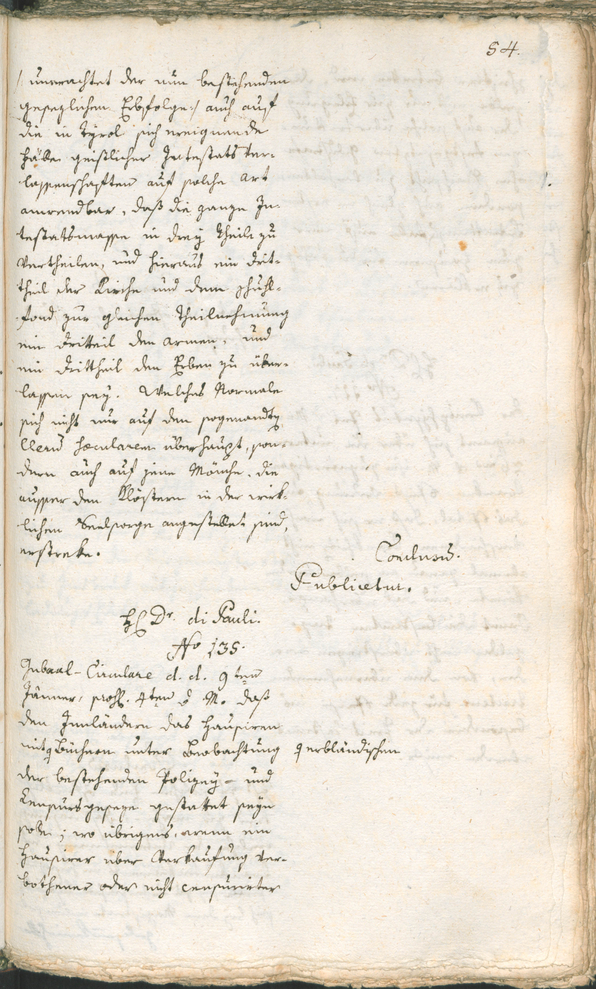 54.
/ unerachtet der nun bestehenden
gesezlichen Erbfolge / auch auf
die in Tyrol sich ereignende
Fälle geistlicher Intestats Ver-
lassenschaften auf solche Art
anwendbar, daß die ganze In-
testatsmasse in drey Theile zu
vertheilen, und hieraus ein Drit-
theil der Kirche und dem Schul-
fond zur gleichen Theilnehmung
ein Dritteil den Armen, und
ein Drittheil den Erben zu über-
lassen sey. Welches Normale
sich nicht nur auf den sogenandten
Clerum saecularem überhaupt, son-
dern auch auf jene Mönche, die
ausser den Klöstern in der wirk-
lichen Seelsorge angestellet sind,
erstreke.
Conclusum.
Publicetur.
H. Dr. di Pauli.
No 135.
Gubernal-Circulare d. d. 9ten
Jänner, praes. 4ten d. M. daß
den Innländern das Hausiren
mit Büchern unter Beobachtung erbländischen
der bestehenden Polizey- und
Censursgeseze gestattet seyn
solle; wo übrigens, wenn ein
Hausirer über Verkaufung ver-
bothener oder nicht censurirter